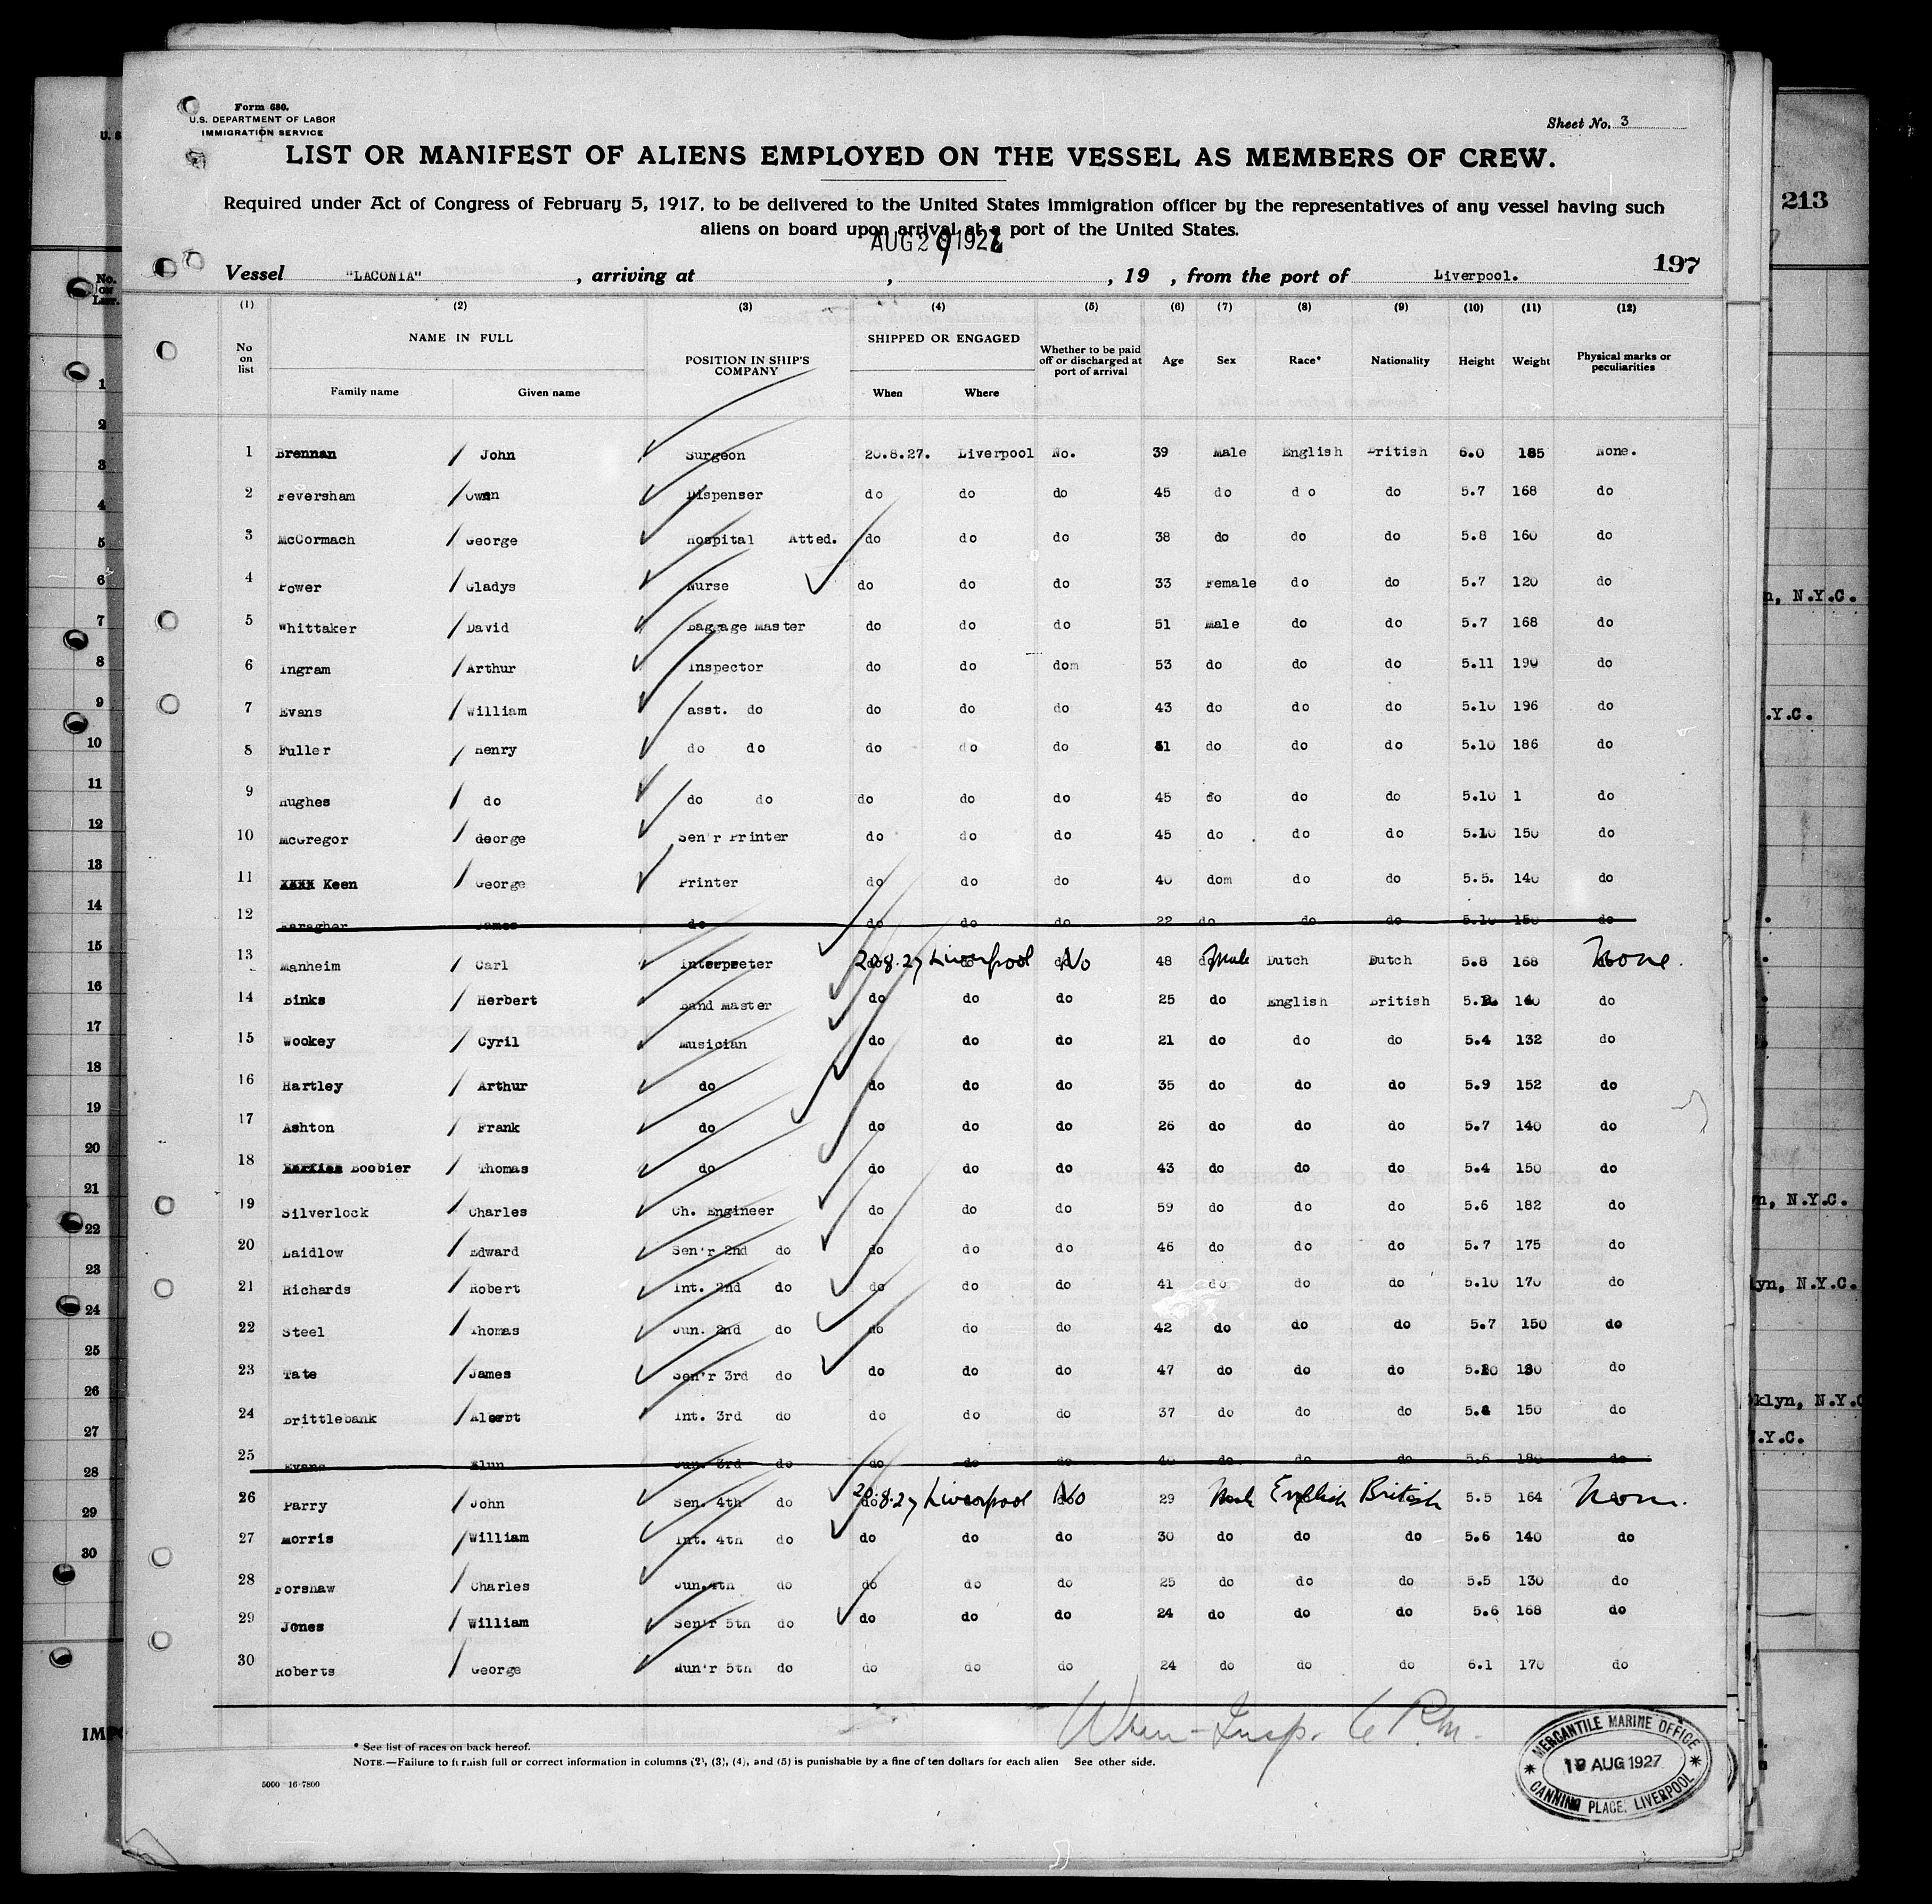 Form 680.
U.S. DEPARTMENT OF LABOR
IMMIGRATION SERVICE
Sheet No. 3
LIST OR MANIFEST OF ALIENS EMPLOYED ON THE VESSEL AS MEMBERS OF CREW.
Required under Act of Congress of February 5, 1917, to be delivered to the United States immigration officer by the representatives of any vessel having such
aliens on board upon arrival at a port of the United States.
AUG 29 1927
Vessel "LACONIA" , arriving at , , 19 , from the port of Liverpool.
197
213
(1) (2) (3) (4) (5) (6) (7) (8) (9) (10) (11) (12)
No on list NAME IN FULL Family name Given name POSITION IN SHIP'S COMPANY SHIPPED OR ENGAGED When Where Whether to be paid off or discharged at port of arrival Age Sex Race* Nationality Height Weight Physical marks or peculiarities
1 Brennan John Surgeon 20.8.27. Liverpool No. 39 Male English British 6.0 185 None.
2 Feversham Owen Dispenser do do do 45 do do do 5.7 168 do
3 McCormach George Hospital Atted. do do do 38 do do do 5.8 160 do
4 Power Gladys Nurse do do do 33 Female do do 5.7 120 do
5 Whittaker David Baggage Master do do do 51 Male do do 5.7 168 do
6 Ingram Arthur Inspector do do dom 53 do do do 5.11 190 do
7 Evans William asst. do do do do 43 do do do 5.10 196 do
8 Fuller Henry do do do do do 51 do do do 5.10 186 do
9 Hughes do do do do do do 45 do do do 5.10 1 do
10 McGregor George Sen'r Printer do do do 45 do do do 5.10 150 do
11 XXXX Keen George Printer do do do 40 dom do do 5.5. 140 do
12 Faragher James do do do do 22 do do do 5.10 150 do
13 Manheim Carl Interpreter 20.8.27 Liverpool No 48 Male Dutch Dutch 5.8 168 None.
14 Binks Herbert Band Master do do do 25 do English British 5. 140 do
15 Wookey Cyril Musician do do do 21 do do do 5.4 132 do
16 Hartley Arthur do do do do 35 do do do 5.9 152 do
17 Ashton Frank do do do do 26 do do do 5.7 140 do
18 Boobier Thomas do do do do 43 do do do 5.4 150 do
19 Silverlock Charles Ch. Engineer do do do 59 do do do 5.6 182 do
20 Laidlow Edward Sen'r 2nd do do do do 46 do do do 5.7 175 do
21 Richards Robert Int. 2nd do do do do 41 do do do 5.10 170 do
22 Steel Thomas Jun. 2nd do do do do 42 do do do 5.7 150 do
23 Tate James Sen'r 3rd do do do do 47 do do do 5.10 180 do
24 Brittlebank Alebrt Int. 3rd do do do do 37 do do do 5. 150 do
25 Evans Elun Jun. 3rd do do do do 40 do do do 5.6 180 do
26 Parry John Sen. 4th do 20.8.27 Liverpool No 29 Male English British 5.5 164 None.
27 Morris William Int. 4th do do do do 30 do do do 5.6 140 do
28 Forshaw Charles Jun.4th do do do do 25 do do do 5.5 130 do
29 Jones William Sen'r 5th do do do do 24 do do do 5.6 168 do
30 Roberts George Jun'r 5th do do do do 24 do do do 6.1 170 do
6 P.m.
* See list of races on back hereof.
NOTE.—Failure to furnish full or correct information in columns (2), (3), (4), and (5) is punishable by a fine of ten dollars for each alien See other side.
5000 16-7800
MERCANTILE MARINE OFFICE
19 AUG 1927
CANNING PLACE, LIVERPOOL